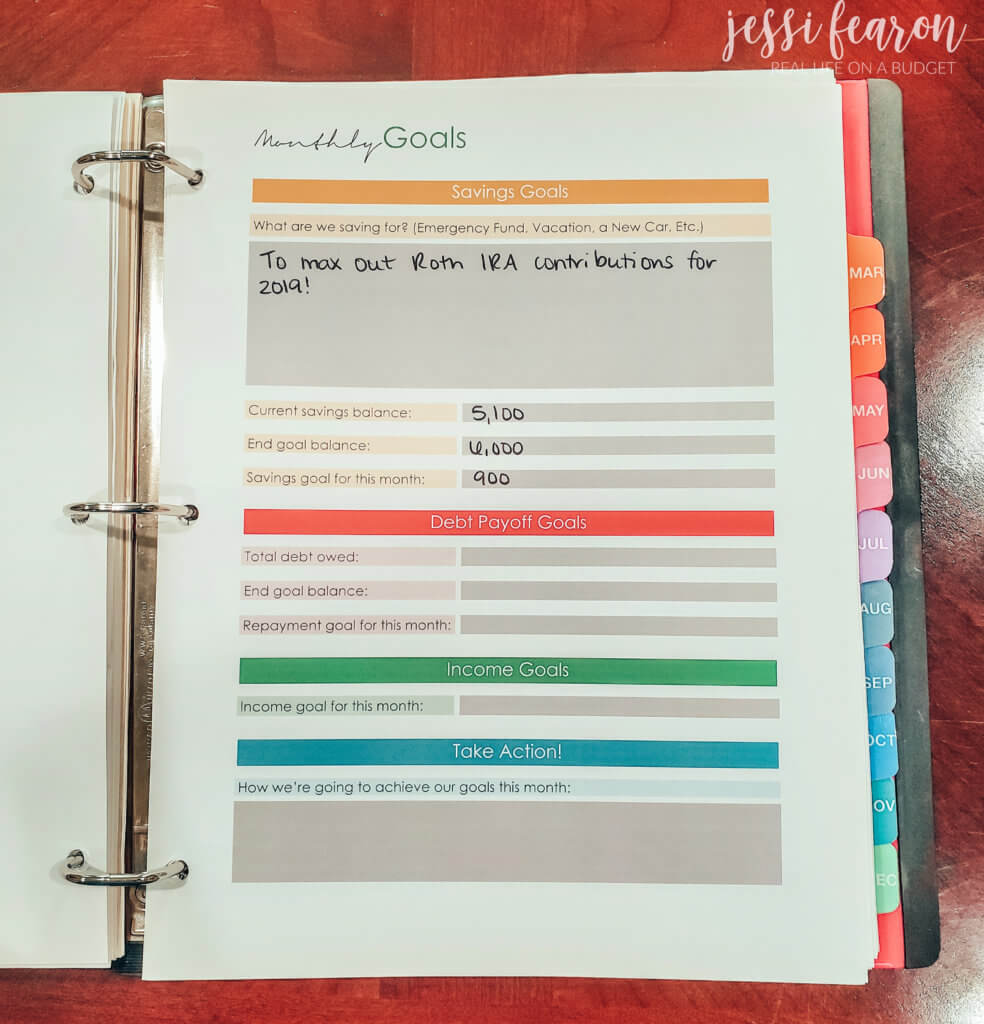 jessi fearon
REAL LIFE ON A BUDGET
Monthly Goals
Savings Goals
What are we saving for? (Emergency Fund, Vacation, a New Car, Etc.)
To max out Roth IRA contributions for
2019!
Current savings balance: 5,100
End goal balance: 6,000
Savings goal for this month: 900
Debt Payoff Goals
Total debt owed:
End goal balance:
Repayment goal for this month:
Income Goals
Income goal for this month:
Take Action!
How we're going to achieve our goals this month:
MAR
APR
MAY
JUN
JUL
AUG
SEP
OCT
OV
EC